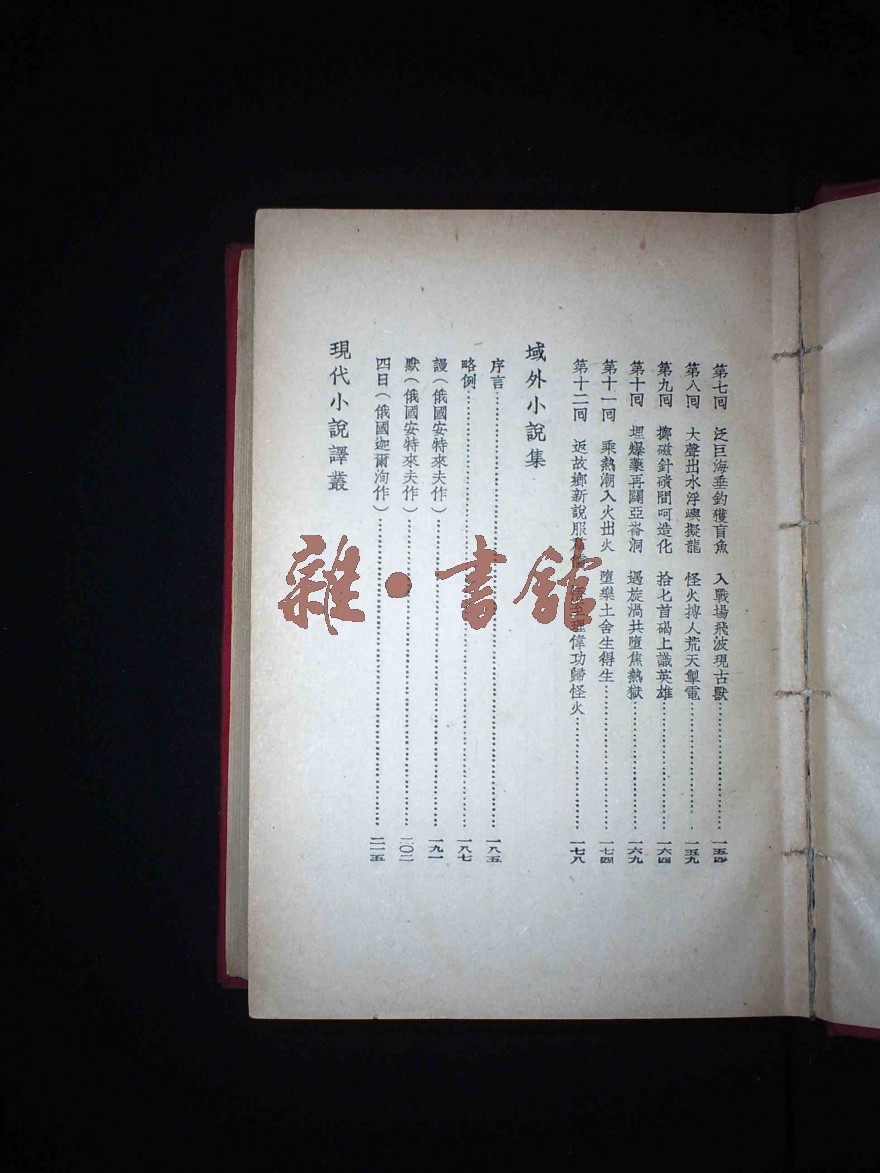 第七回 泛巨海垂釣獲盲魚 入戰場飛波現古獸……一五四
第八回 大聲出水浮嶼擬龍 怪火摶人荒天掣電……一五九
第九回 擲磁針碛間呵造化 拾匕首碣上識英雄……一六四
第十回 埋爆藥再闢亞崙洞 遇旋渦共墮焦熱獄……一六九
第十一回 乘熱潮入火出火 墮樂土舍生得生……一七四
第十二回 返故鄉新說服 理偉功歸怪火……一七八
域外小說集
序言……一八五
略例……一八七
謾(俄國安特來夫作)……一九一
默(俄國安特來夫作)……二〇二
四日(俄國迦爾洵作)……二一五
現代小說譯叢
雜·書館